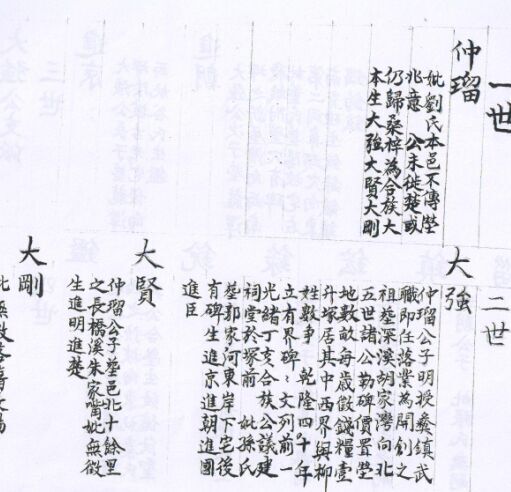 一世
仲瑠
妣劉氏本邑不傳塋
兆意 公未徙楚或
仍歸桑梓為合族大
本生大強大賢大剛
二世
大強
仲瑠公子明授彝鎮武
職即任落業為開創之
祖塟深溪胡家灣向北
五世諸公勒碑價置塋
地數畝每歲徵錢糧壹
斗塚居其中西界與柳
姓數爭 乾隆四十年
立有界碑〻文列前一
光緒丁亥合族公議建
祠堂於塚前 妣孫氏
塟郭家河東岸下宅後
有碑生進京進朝進國
進臣
大賢
仲瑠公子塟邑北十餘里
之長橋溪朱家嘴妣無徵
生進明進楚
大剛